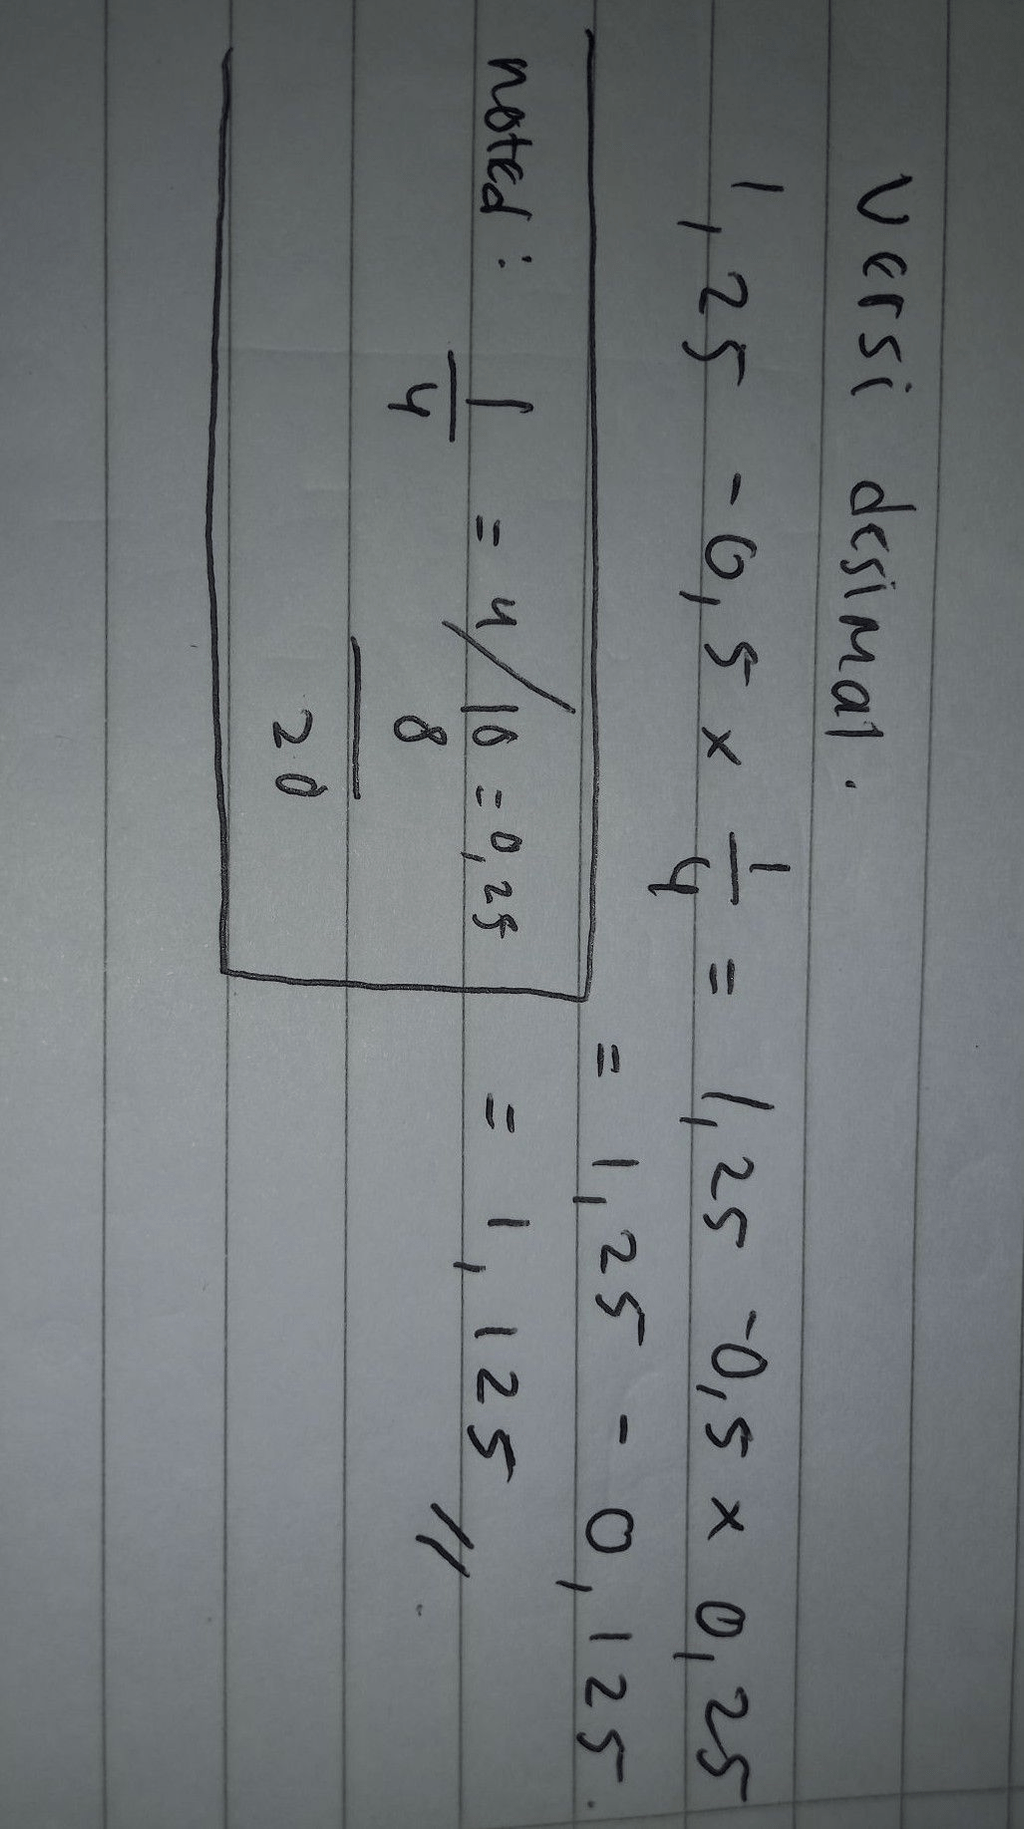 Versi desimal.
1,25 - 0,5 × 1/4 = 1,25 - 0,5 × 0,25
= 1,25 - 0,125.
noted : 1/4 = 4/10 = 0,25 = 1,125 //
8
20